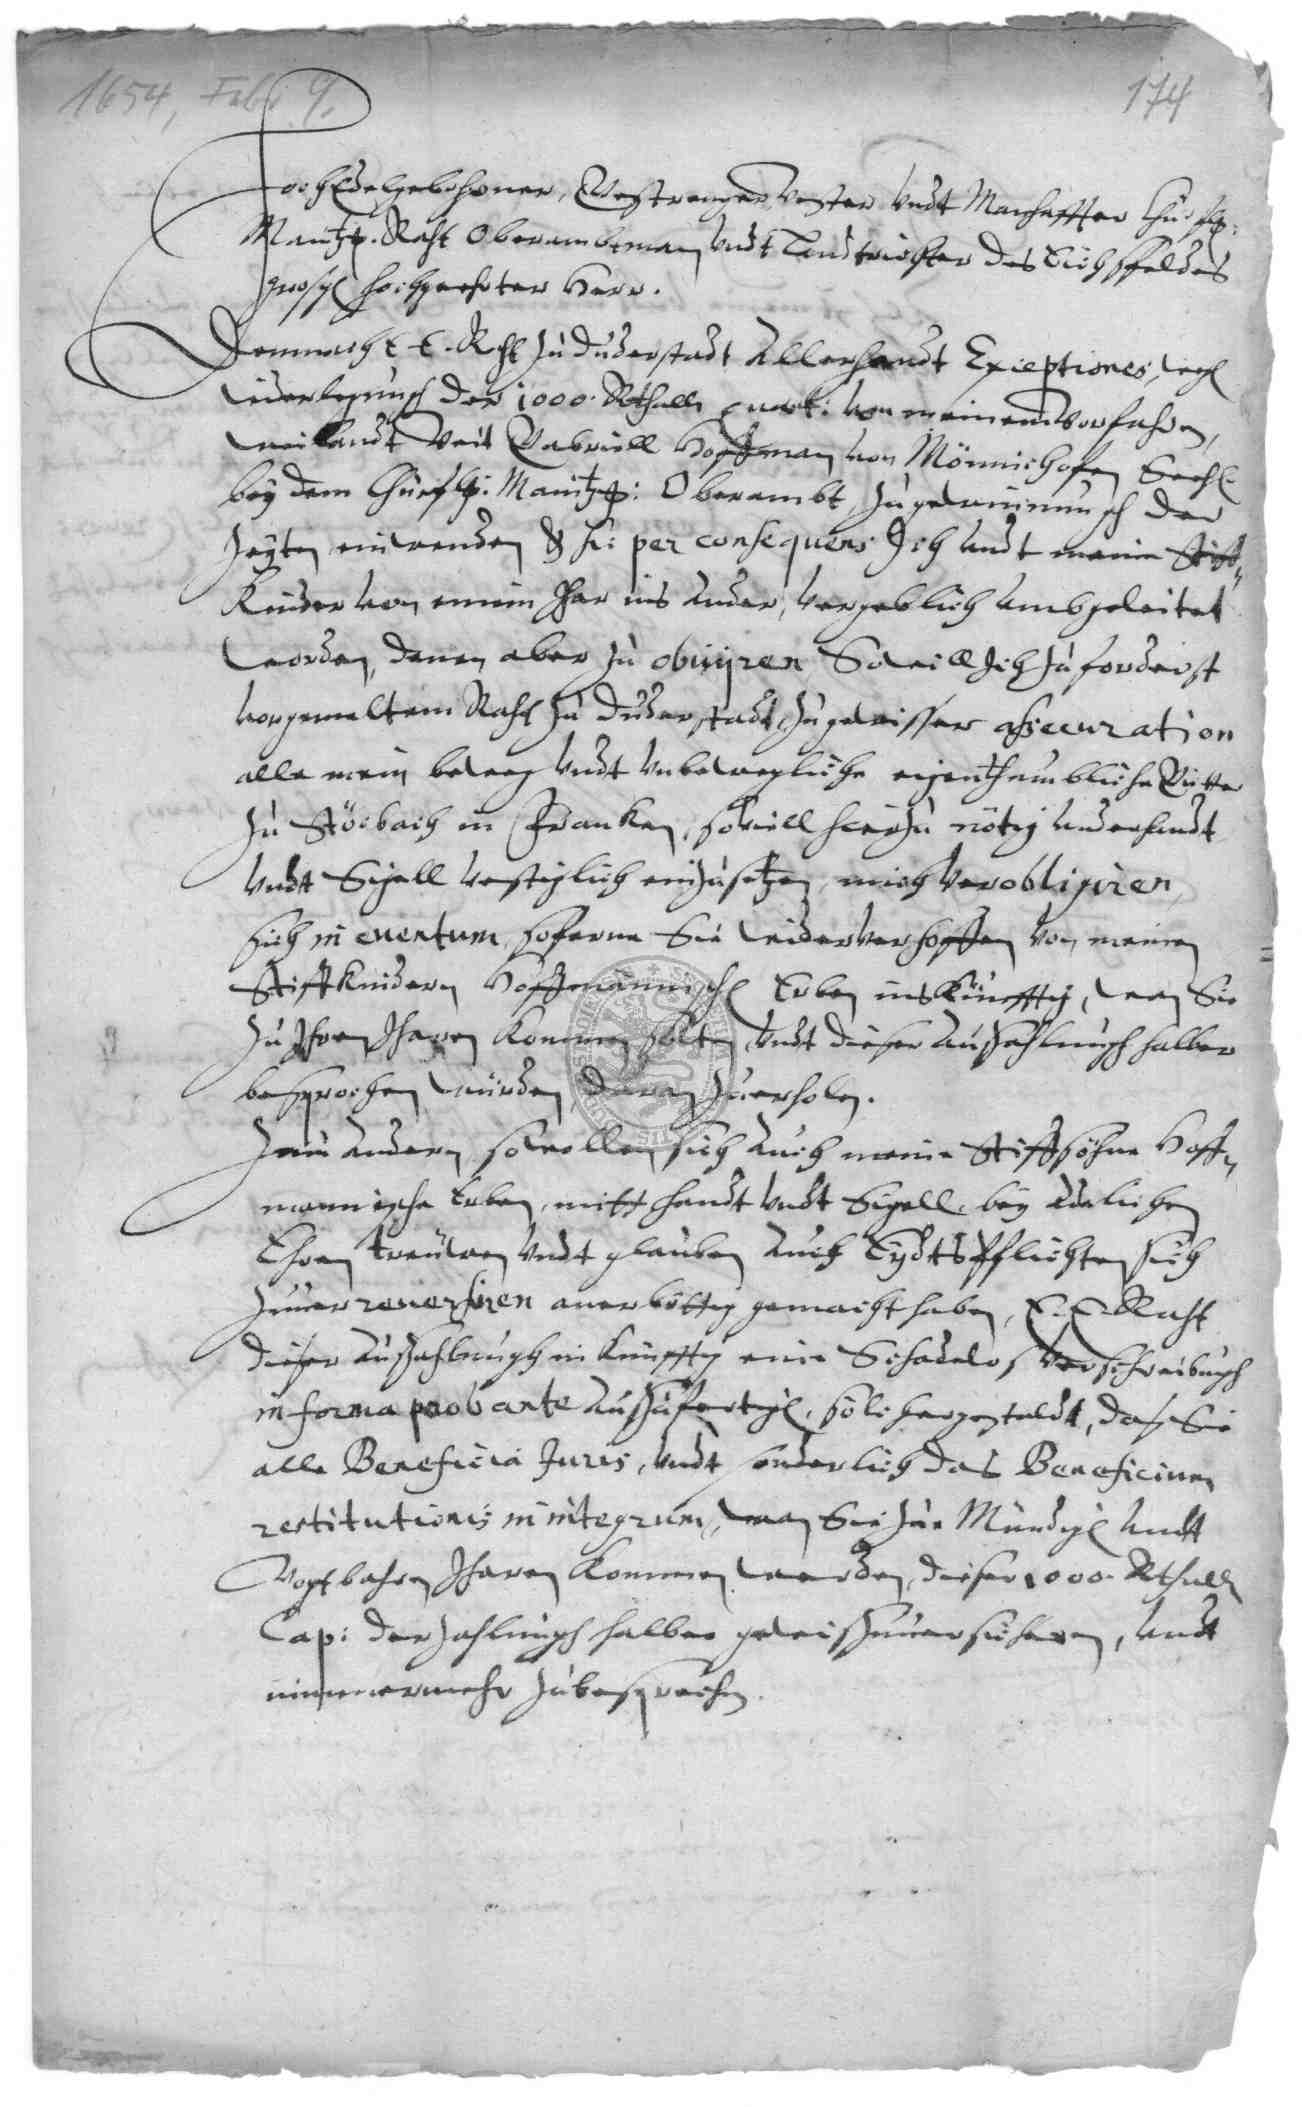 1654, Febr. 9.
174
HochEdelgebohrner, Gestrenger Vester vndt Manhaffter Churfl:
Maintz. Raht Oberambtman vndt Landtrichter des Eichsfeldes
grosg. hochgeehrter Herr.
Demnach E. E. Raht zu Duderstadt Allerhandt Exceptiones,
wiederlegung der 1000. Rthall von meinem Vorfahren,
weilandt Veit Gabriell Hoffman von Mönnichofen Seel.
bey dem Churfl: Maintz: Oberambt, zu gewinnung der
Zeyten einwenden per consequens Ich vndt meine Stiff-
Kinder von einem Jhar ins ander, vergeblich vmbgeleitet
worden, denen aber zu obvijren, So will Ich zuforderst
vorgemeltem Raht zu Duderstadt, zu gewisser assecuration
alle mein beweg vndt vnbewegliche eigenthumbliche Gütter
zu Störbach in Francken, soviell hierzu nötig vnderhandt
vndt Sigell vestiglich einzusetzen, mich verobligiren,
sich in eventum, soferne Sie wiederverhoffen von meinen
Stiffkindern Hoffmännische Erben inskünfftig, wan Sie
zu Ihren Jharen kommen solten, vndt dieser auszahlungh halber
besprochen würden, daran zuerholen.
Zum andern, so wollen sich auch meine Stiffsöhne Hoff-
mannische Erben, mitt handt vndt Sigell, bey Adelichen
Ehren, trewen vndt glauben auch Eydtspflichten sich
zuuerreversiren anerböttig gemacht haben, E. E. Raht
dieser auszahlungh in künfftig eine Schadelos verschreibungh
in forma probante auszufertigen, solchergestaldt, das Sie
alle Beneficia Juris, vndt sonderlich das Beneficium
restitutionis in integrum, wan Sie zue Mündig vndt
Vogtbahren Jharen kommen werden, dieser 1000. Rthall
Cap: der zahlungh halber gewis zuuersicheren, vndt
nimmermehr zubesprechen.